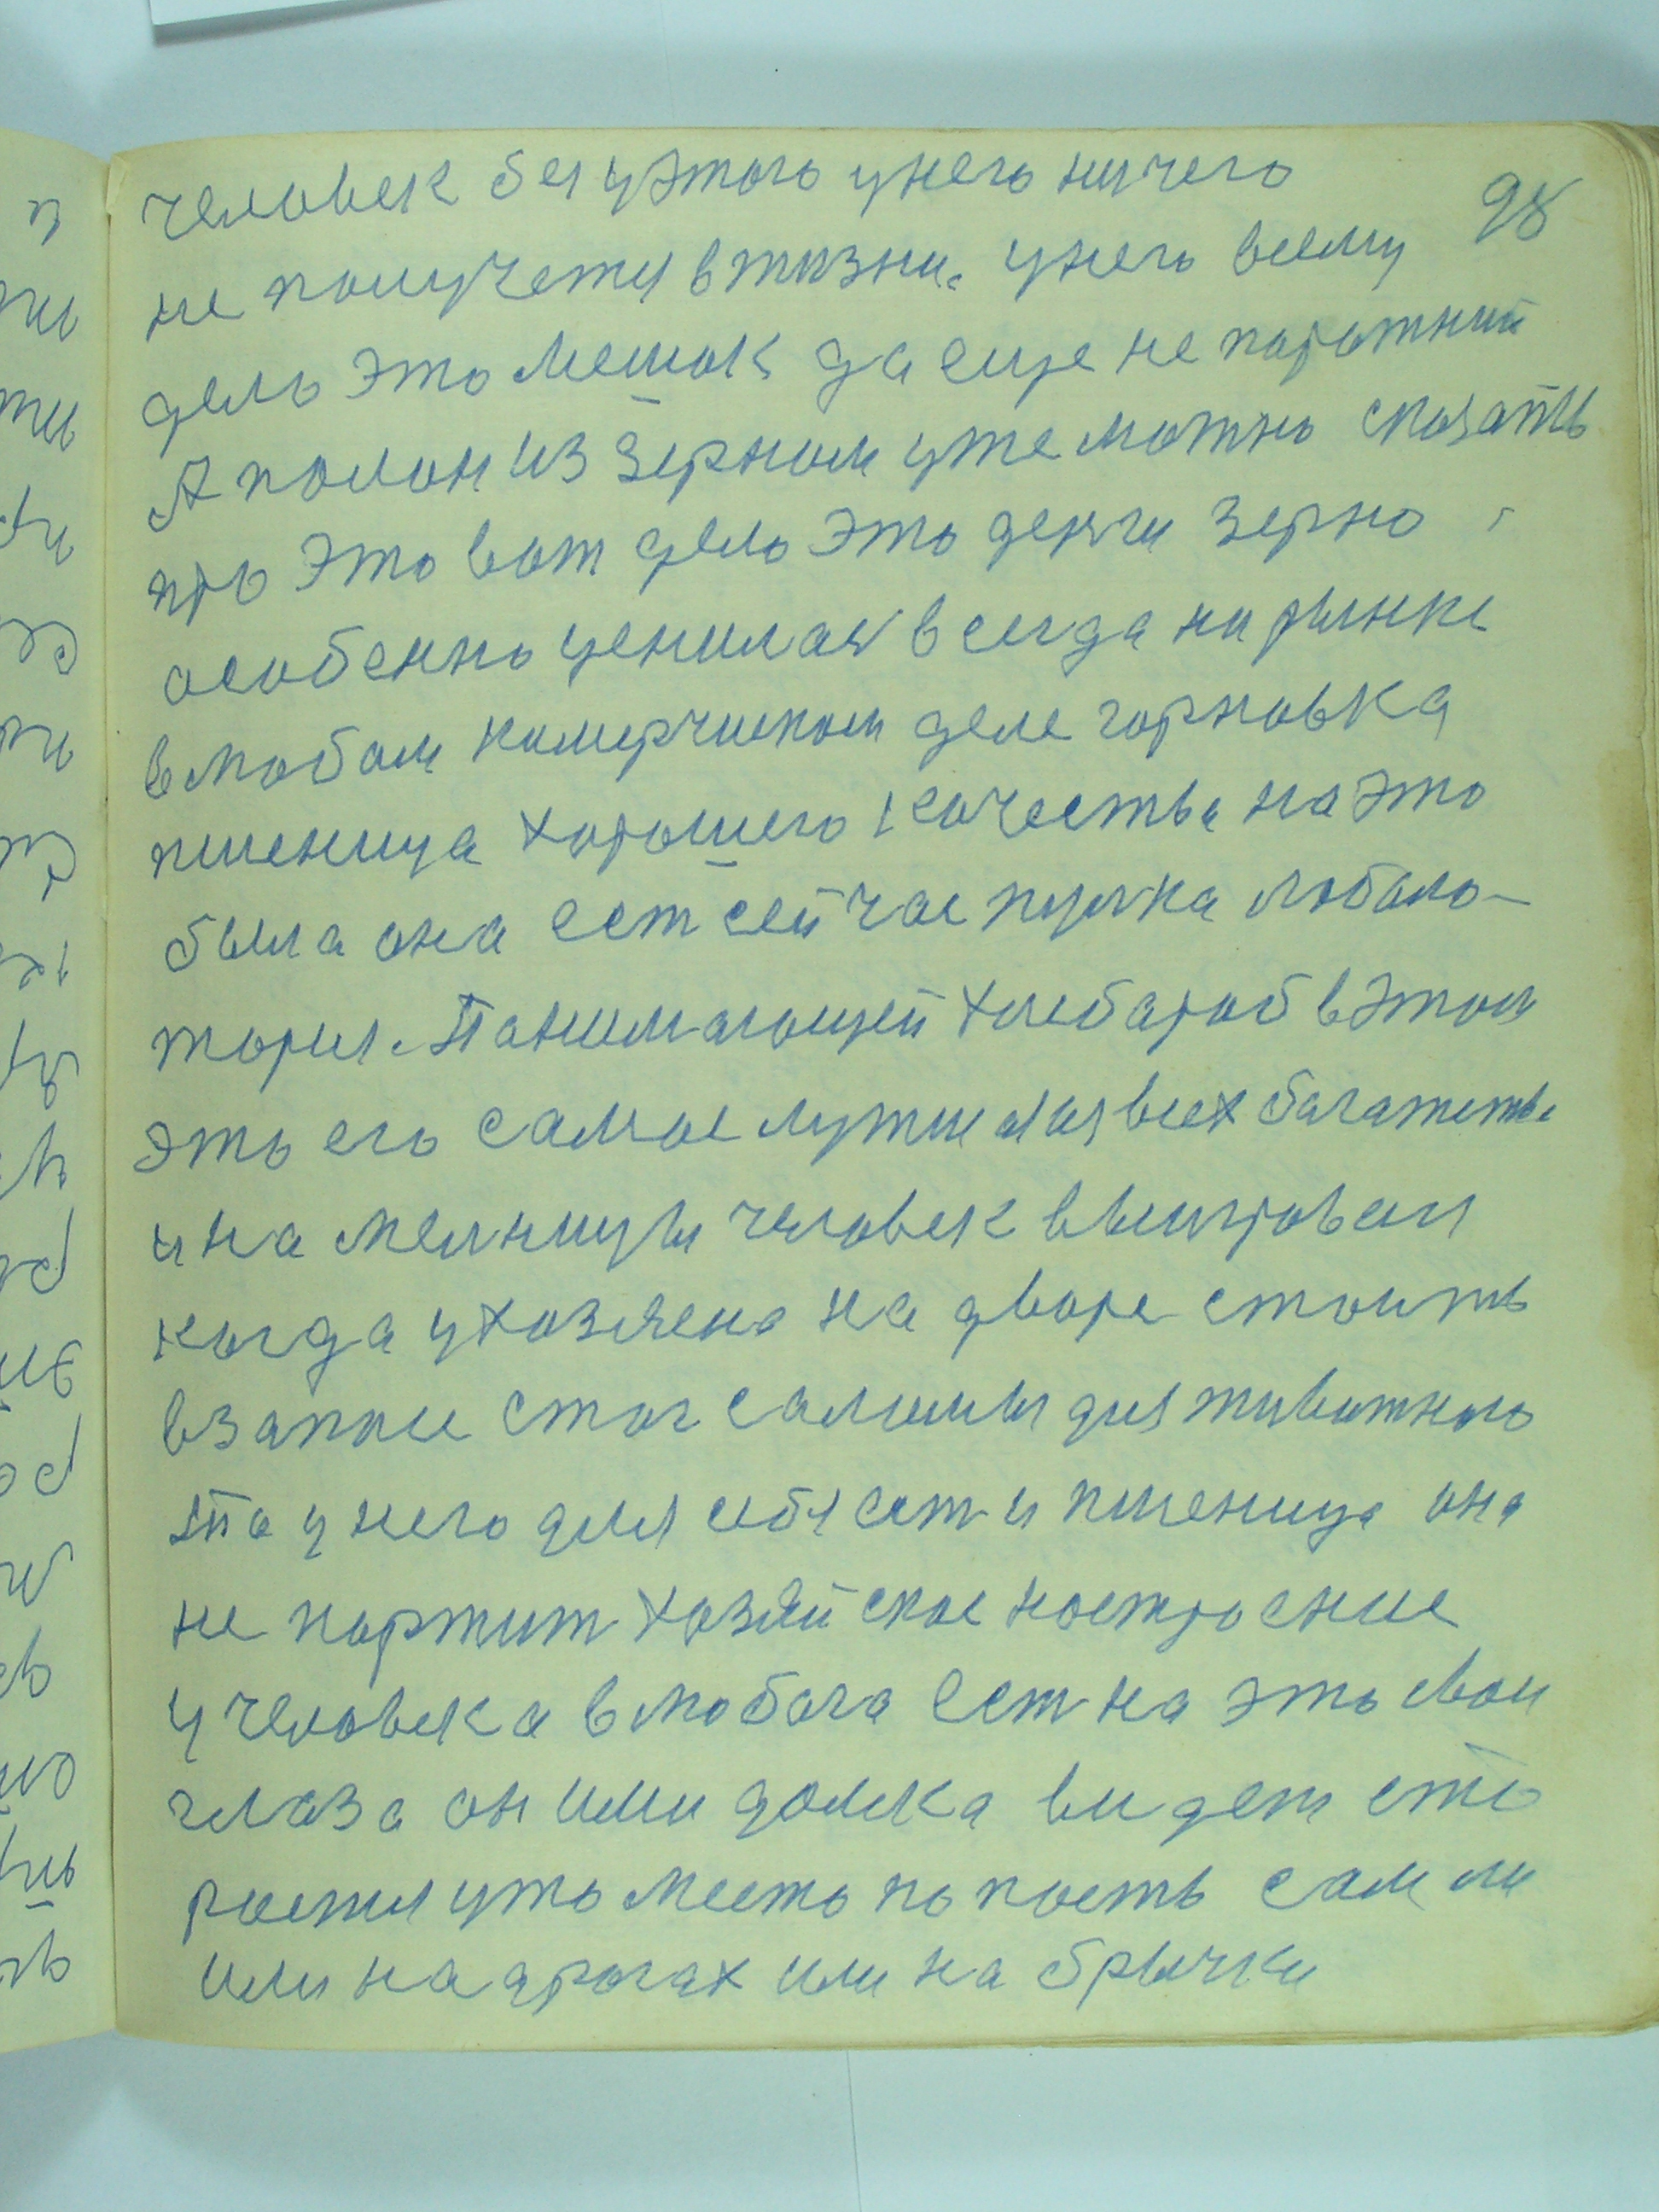 человек без уэтого унего ничего
98
не получется в жизни. унего всему
дело это мешок да еще не порожний
А полон из зерном уже можно сказать
про это вот дело это денги зерно
особенно ценилася всегда на рынке
влюбом комерчиском деле горновка
пшеница хорошего качества на это
была она ест сейчас пулка любало-
торея. Панимающей хлебароб в этом
это его самое лутше изя всех багатств
и на мелницы человек выигровал
когда ухозяена на дворе стоить
взапасе стог саломы для животного
та у него для себя ест и пшеница она
не портит хозяйское настроение
у человека влюбога ест на это свои
глаза он ими должа видет сто
ростися место попасть сам ли
или на дрогах или на брычки